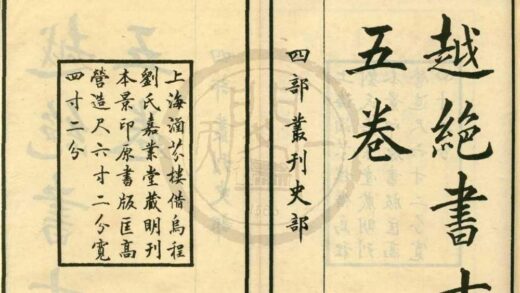 越絕書十
五卷
四部叢刊史部
上海涵芬樓借烏程
劉氏嘉業堂藏明刊
本景印原書版匡高
營造尺六寸二分寬
四寸二分